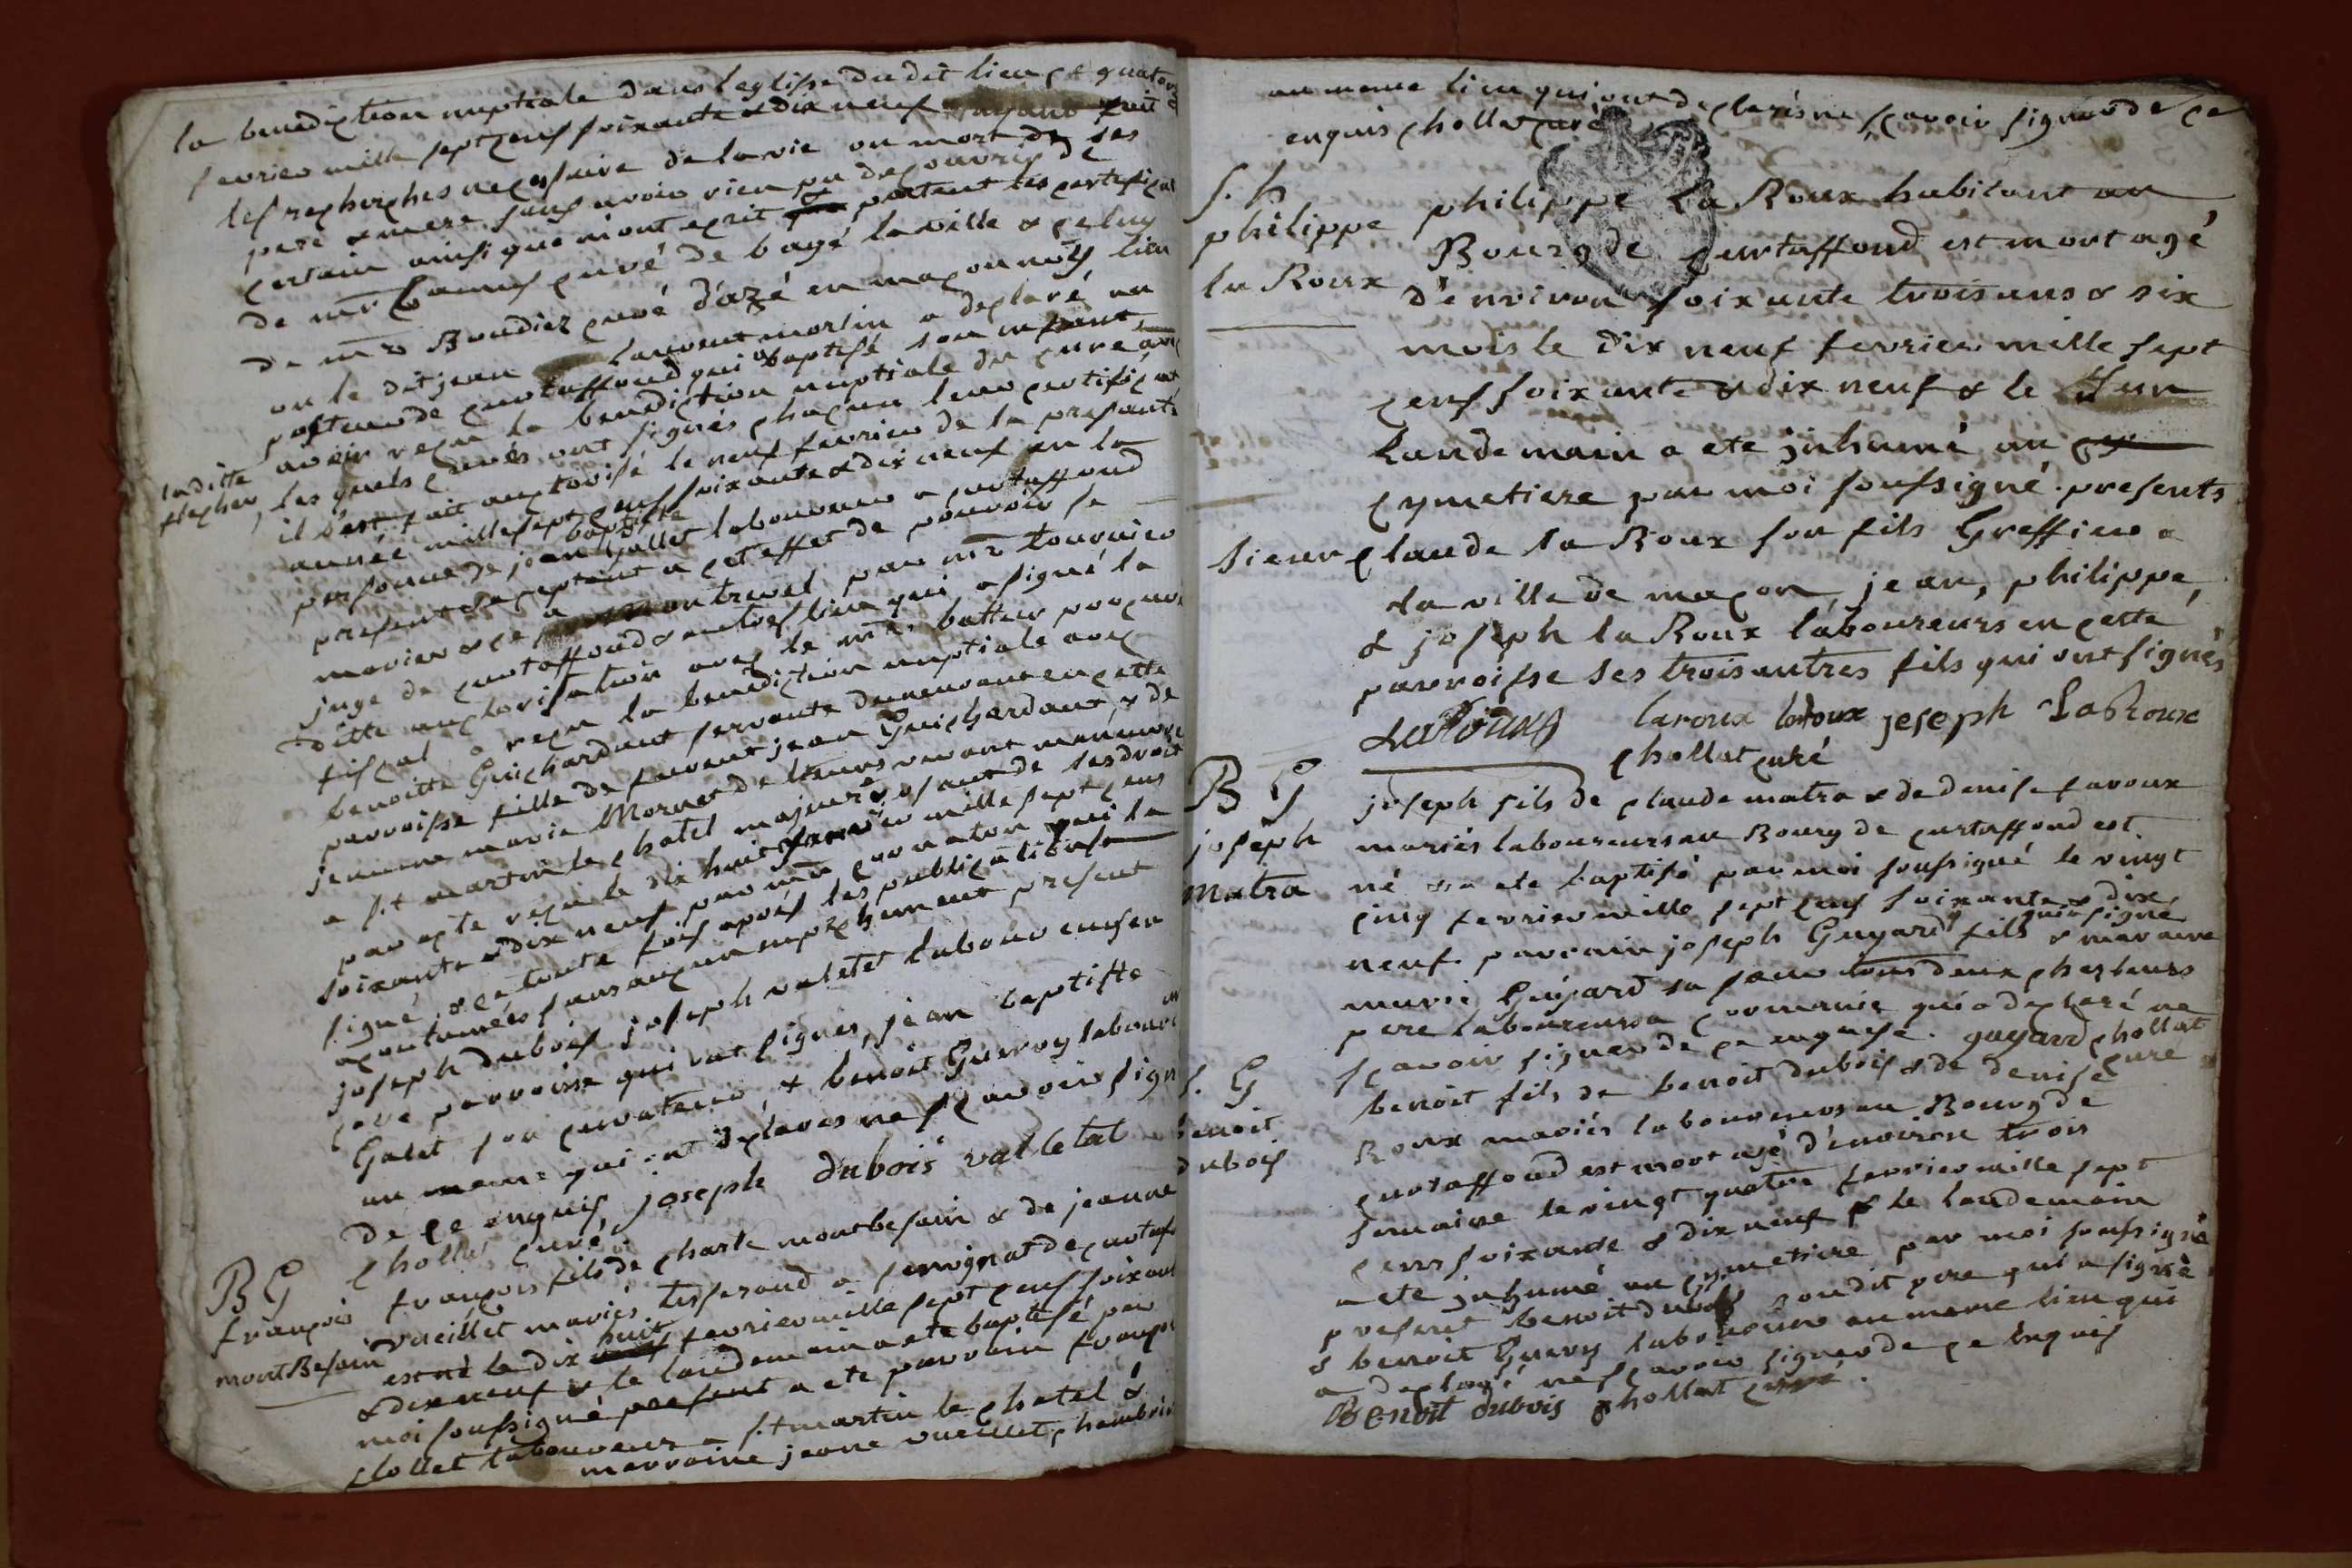 la benediction nuptiale dans leglisse du dit lieu ce quatorze
fevrier mille sept cens soixante & dix neuf ayant fait
les recherches necessaire de la vie ou mort de ses
pere & mere sans avoir rien pu decouvrir de
certain ainsi que m'ont ecrit portent les certificat
de mr curé de bagé la ville & celuy
de mr Boudier curé d'azé en maconnois lieu
ou le dit jean laurent morlin a declaré au
pasteur de curtaffond qui a baptisé son enfant
avoir reçu la benediction nuptiale du curé avec
laditte
flecher, les quels curés ont signés chacun leur certificat
il s'est fait auctorisé le neuf fevrier de la presante
année mille sept cens soixante & dix neuf en la
personne de jean baptiste Gallet laboureur a curtaffond
present & acceptant a cet effet de pouvoir se
marier & ce a montrevel par mr tournier
juge de curtaffond & autres lieu qui a signé la
ditte auctorisation avec le mr. battur procureur
fiscal a reçu la benediction nuptiale avec
benoitte Guichardant servante demeurant en cette
parroisse fille de favent jean Guichardant, & de
jeanne marie Mornet de leurs vivant manuvre
a st martin le chatel majeure & usant de ses droit
par acte reçu le dix huit janvier mille sept cens
soixante & dix neuf par mr qui la
signé, & ce toute fois aprés les publications
acoutumées sans aucun empechement present
joseph dubois joseph valetet laboureurs en
cette parroisse qui ont signés, jean baptiste
Galet son curateur, & benoit Guerry laboureur
au meme qui ont declarés ne scavoir signer
de ce enquis joseph dubois valletet
chollat curé
BG
françois
montBesain
françois fils de charle montbesain & de jeanne
vueillet mariés tisserand a servignat de curtaf
est né le dix huit fevrier mille sept cens soixante
& dix neuf & le landemain a ete baptisé par
moi soussigné present a ete parrain françois
chollet laboureur a st martin le chatel &
marraine jeane vueillet, chambriere
au meme lieu qui ont declarés ne scavoir signer de ce
enquis chollat curé
S. h
philippe
la Roux
philippe La Roux habitant au
Bourg de curtaffond est mort agé
d'environ soixante trois ans & six
mois le dix neuf fevrier mille sept
cens soixante & dix neuf & le
landemain a ete jnhumé au cy
cymetiere par moi soussigné. presents
sieur claude la Roux son fils Greffier a
la ville de maçon, jean, philippe,
& joseph la Roux laboureurs en cette
parroisse ses trois autres fils qui ont signés
LaRoux laroux laroux joseph LaRoux
chollat curé
B G
joseph
Matra
joseph fils de claude matra & de denise favoux
mariés laboureurs au Bourg de curtaffond est
né & a ete baptisé par moi soussigné le vingt
cinq fevrier mille sept cens soixante & dix
neuf. parrain joseph Guyard fils qui a signé & maraine
marie Guyard sa sœur tous deux chez leurs
pere laboureurs a cormariz qui a declaré ne
scavoir signer de ce enquise. guyard chollat
curé
S. G
benoit
dubois
benoit fils de benoit dubois & de denise
Roux mariés laboureurs au Bourg de
curtaffond est mort agé d'environ trois
semaine le vingt quatre fevrier mille sept
cens soixante & dix neuf & le landemain
a ete jnhumé au cymetiere par moi soussigné
present benoit dubois son dit pere qui a signé
& benoit Guery laboureur au meme lieu qui
a declaré ne scavoir signer de ce enquis
Benoit dubois chollat curé.